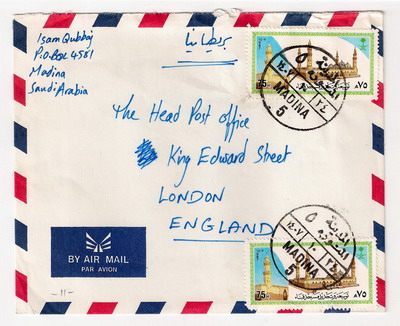 Isam Qubbaj
P.O.Box 4581
Madina
Saudi Arabia
بريطانيا
The Head Post office
King Edward Street
LONDON
ENGLAND
BY AIR MAIL
PAR AVION
- 11 -
75
٧٥
المدينة
المنورة
٥
MADINA
5
75
٧٥
المدينة
المنورة
٥
MADINA
5